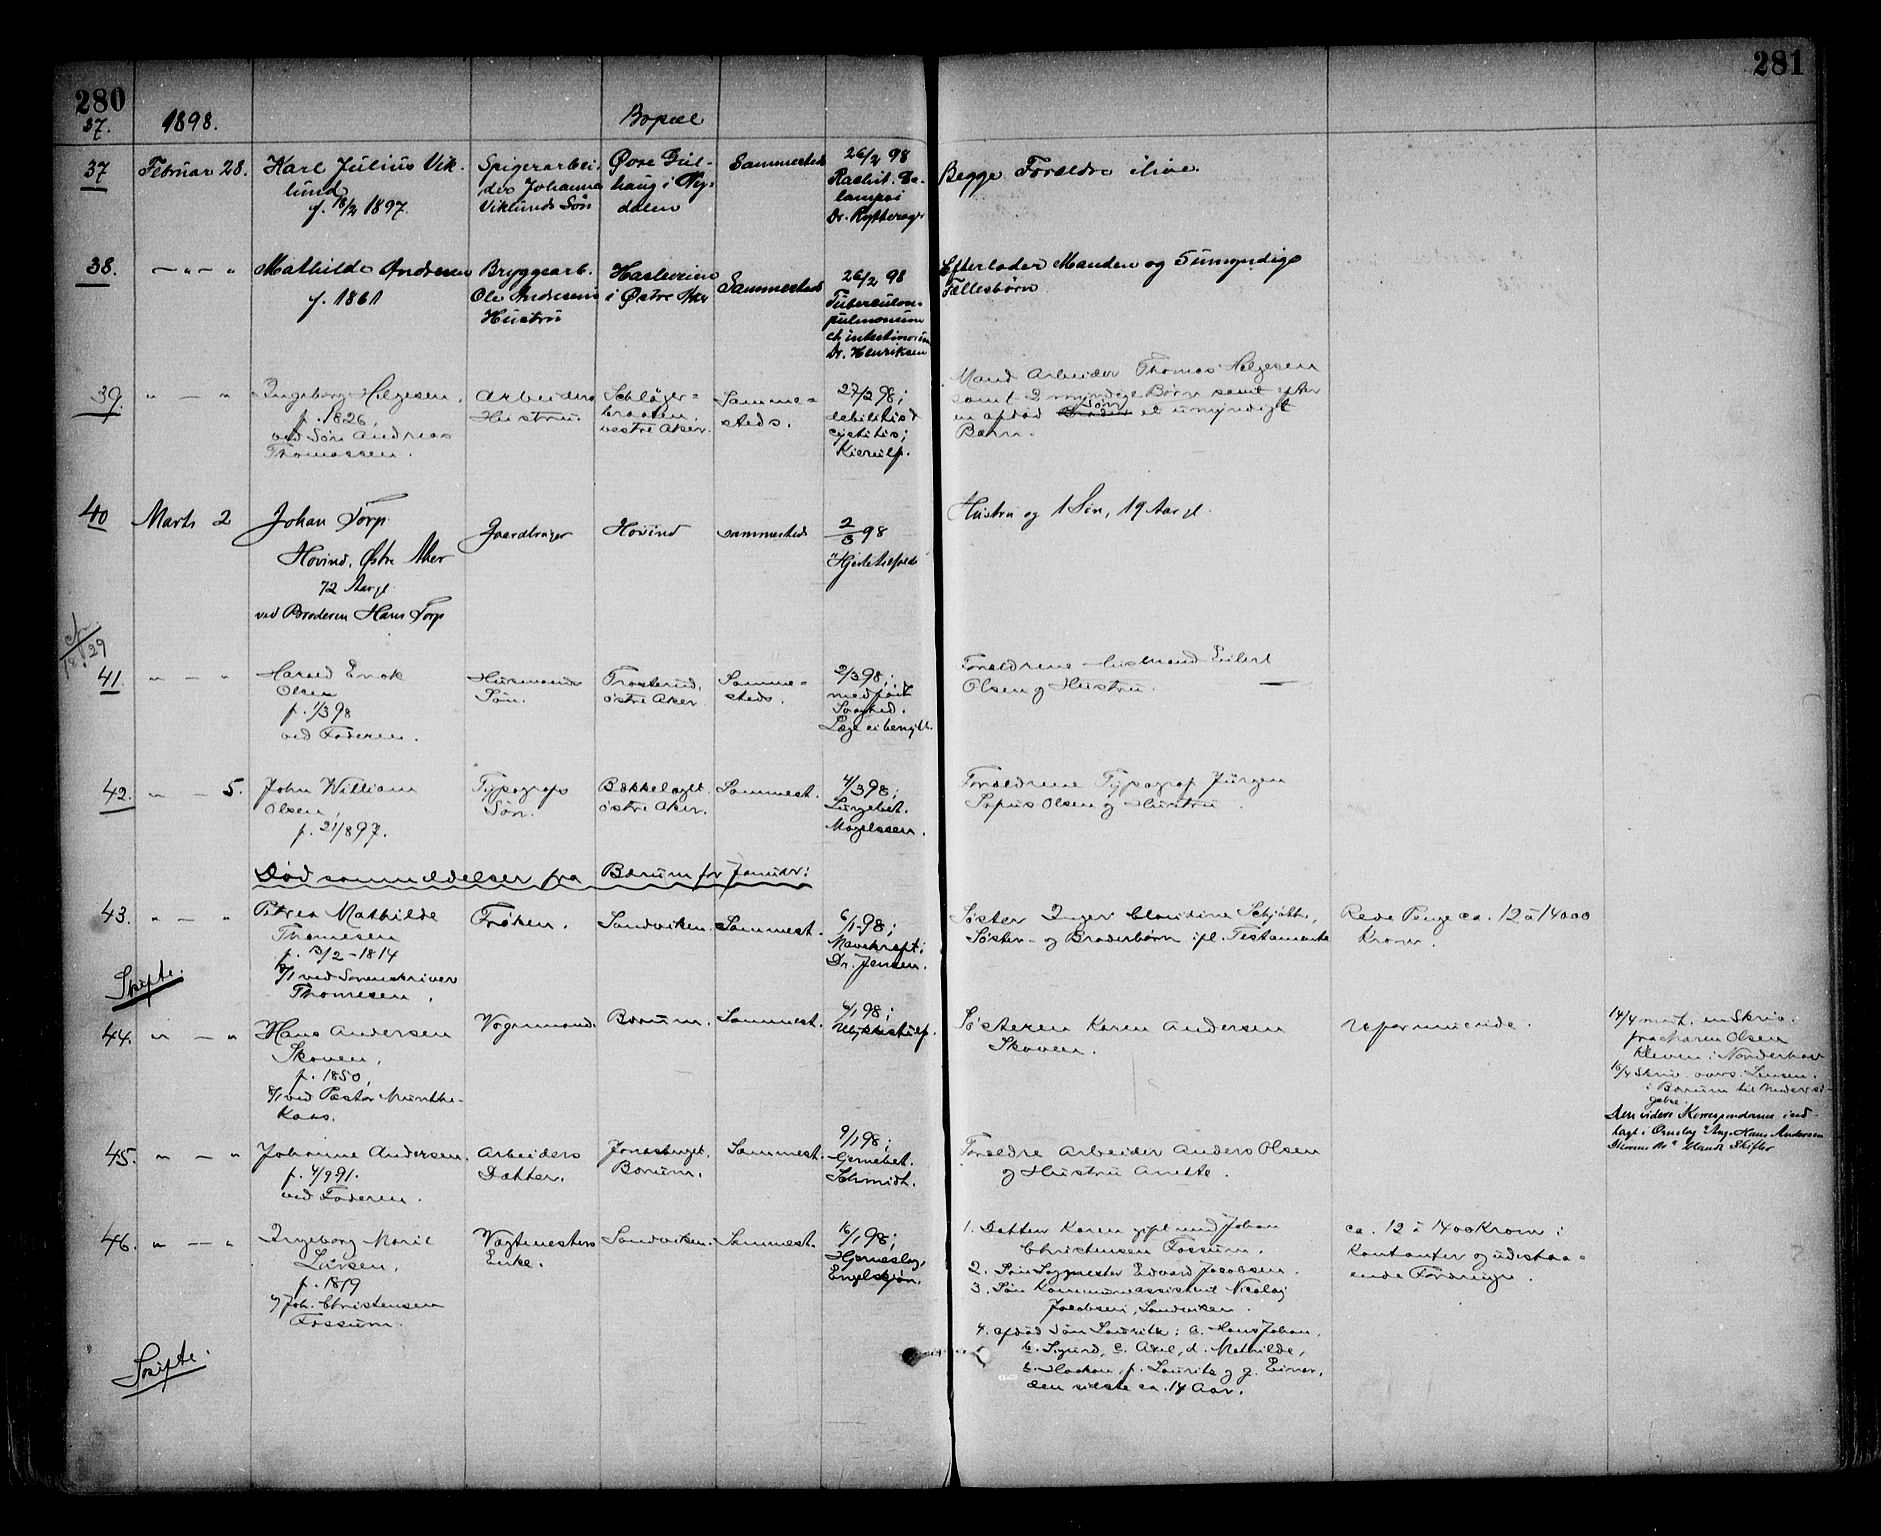 280
281
37.
1898.
Bopæl
37
Februar 28.
Karl Julius Vik-
lund
f. 18/2 1897.
Spigerarbei-
der Johannes
Viklunds Søn
Øvre Gul-
haug i Ny-
dalen
Sammesteds
26/2 98
Rachit.
Dr.
Begge Forældre ilive.
38.
— " — "
Mathilde Andersen
f. 1861
Bryggearb.
Ole Andersens
Hustru
Hasleveien
i Østre Aker
Sammesteds
26/2 98
Tuberculon.
pulmonum
et intestinorum
Dr. Henriksen
Efterlader Manden og 5 umyndige
Fællesbørn
39.
" — "
Ingeborg Helgesen,
f. 1826,
ved Søn Andreas
Thomassen.
Arbeiders
Hustru.
Schløger-
braaten,
vestre Aker.
Samme-
steds.
27/2 98;
debilitas &
cystitis;
Kierulf.
Mand Arbeider Thomas Helgesen
samt 2 myndige Børn samt efter
en afdød Søn et umyndigt
Barn.
40
Marts 2
Johan Torp
Hovind, Østre Aker
72 Aar gl.
ved Broderen Hans Torp
Gaardbruger
Hovind
sammesteds
2/3 98
"Hjertetilfælde"
Hustru og 1 Søn, 19 Aar gl.
29
41.
" — "
Harald Enok
Olsen
f. 1/3 98
ved Faderen.
Husmands
Søn.
Trosterud,
østre Aker
Samme-
steds.
2/3 98;
medfødt
Svaghed.
Læge ei benytt.
Forældrene Husmand Eilert
Olsen og Hustru.
42.
" — 5.
John William
Olsen,
f. 21/8 97.
Typografs
Søn.
Bækkelaget
østre Aker.
Sammest.
4/3 98;
Lungebet.
Magelssen.
Forældrene Typograf Jürgen
Sofus Olsen og Hustru.
Dødsanmeldelser fra Bærum for Januar:
43.
" — "
Petrea Mathilde
Thomesen
f. 13/2 - 1814
8/1 ved Sorenskriver
Thomesen,
Frøken.
Sandviken.
Sammest.
6/1 98;
Mavekræft;
Dr. Jensen.
Søster Inger Claudine Schjøtt,
Søster- og Broderbørn ifl. Testamente
Rede Penge ca. 12 à 14000
Kroner.
Skifte.
44.
" — "
Hans Andersen
Skoven,
f. 1850,
8/1 ved Pastor Munthe-
Kaas.
Vognmand.
Bærum.
Sammest.
6/1 98;
Ulykkestilf.
Søsteren Karen Andersen
Skoven.
Uformuende.
14/4 modt. en Skriv.
fra Maren Olsen
Kleven i Norderhov
16/4 Skriv. overs. Lensm.
i Bærum til Undersø-
gelse.
Den videre Korrespondance ind-
lagt i Omslag "Ang. Hans Andersen
Skovens Bo" blandt Skifter
45.
" — "
Johanne Andersen.
f. 4/9 91.
ved Faderen.
Arbeiders
Datter.
Jonasberget,
Bærum.
Sammest.
9/1 98;
Hjernebet.
Schmidt.
Forældre Arbeider Anders Olsen
og Hustru Anette.
46.
" — "
Ingeborg Marie
Larsen,
f. 1819
v/ Joh. Christensen
Fossum.
Vagtmesters
Enke.
Sandviken.
Sammest.
16/1 98;
Hjerneslag,
Engelskjøn.
1. Datter Karen gift med Johan
Christensen Fossum.
2. Søn Sagmester Edvard Jacobsen.
3. Søn Kommuneassistent Nicolay
Jacobsen, Sandviken.
4. afdød Søn Lauritz: a. Hans Johan,
b. Sigurd, c. Axel, d. Mathilde,
e. Haakon, f. Lauritz og g. Einar,
den sidste ca. 14 Aar.
ca. 12 à 1400 Kroner i
Kontanter og udestaa-
ende Fordringer.
Skifte.